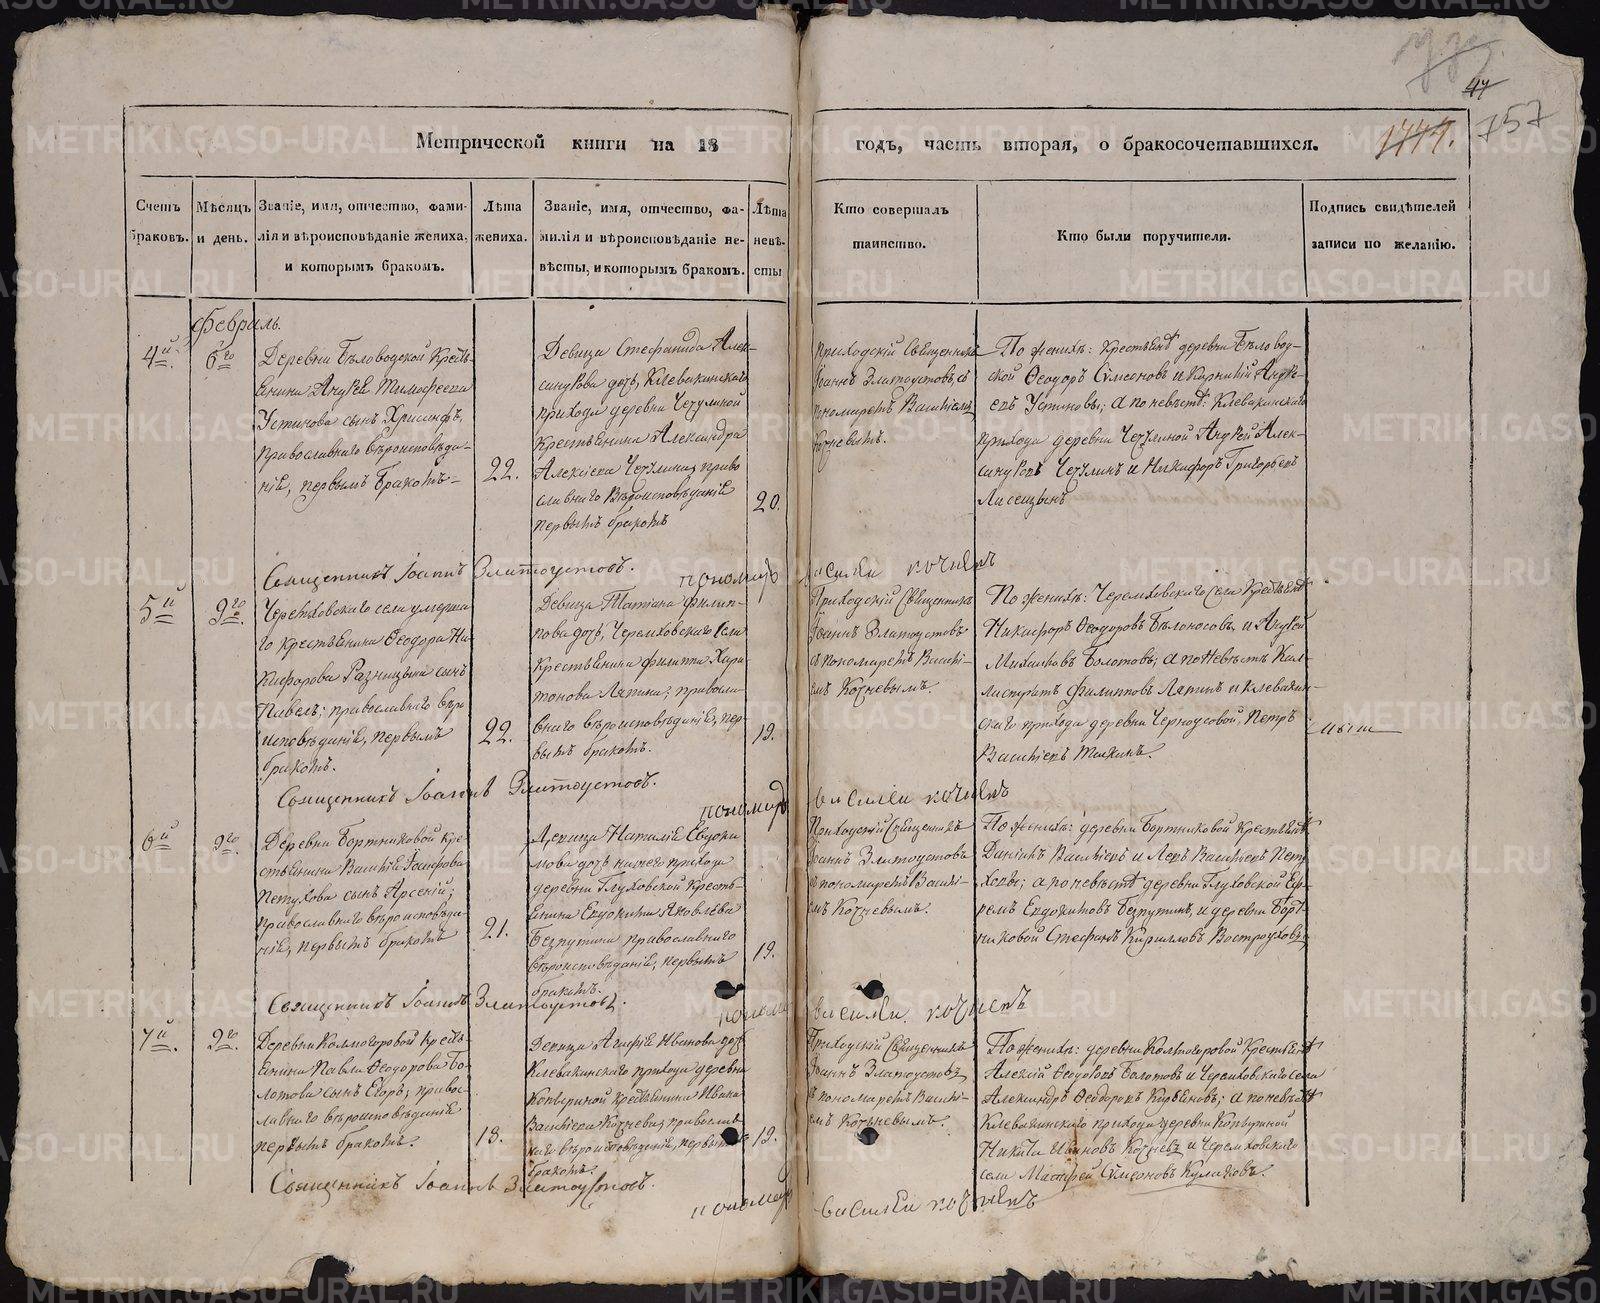 47
157
1777.
Метрической книги на 18
годъ, часть вторая, о бракосочетавшихся.
Счетъ браковъ.
Мѣсяцъ и день.
Званіе, имя, отчество, фами-
лія и вѣроисповѣданіе жениха,
и которымъ бракомъ.
Лѣта
жениха.
Званіе, имя, отчество, фа-
милія и вѣроисповѣданіе не-
вѣсты, и которымъ бракомъ.
Лѣта
невѣ-
сты
Кто совершалъ
таинство.
Кто были поручители.
Подпись свидѣтелей
записи по желанію.
Февраль.
4й
6го
Деревни Бѣловодской Кресть-
янина Андрея Тимофеева
Устинова сынъ Хрисанфъ,
православнаго вѣроисповѣда-
нія, первымъ бракомъ
22.
Девица Стефанида Алек-
сандрова дочь, Клевакинскаго
прихода деревни Чечулиной
крестьянина Александра
Алексіева Чечулина, право
славнаго вѣроисповѣданія
первымъ бракомъ
20.
Приходскій Священникъ
Іоаннъ Златоустовъ съ
пономаремъ Василіемъ
Кочневымъ.
По женихѣ: крестьяне деревни Бѣловод-
ской Феодоръ Симеоновъ и Корнилій Андре-
евъ Устиновы; а по невѣстѣ: Клевакинскаго
прихода деревни Чечулиной Андрей Алек-
сандровъ Чечулинъ и Никифоръ Григорьевъ
Лисицынъ
Священникъ Іоаннъ Златоустовъ.
пономарь василеи кочневъ
5й
9го.
Черемховскаго села умерша
го крестьянина Феодора Ни
кифорова сынъ
Павелъ; православнаго вѣро
исповѣданія, первымъ
бракомъ.
22.
Девица Татіана Филип-
пова дочь, Черемховскаго села
крестьянина Филиппа Хари
тонова Ляпина; правосла
внаго вѣроисповѣданія, пер-
вымъ бракомъ.
19.
Приходскій Священникъ
Іоаннъ Златоустовъ
съ пономаремъ Василі-
емъ Кочневымъ.
По женихѣ: Черемховскаго села крестьяне
Никифоръ Феодоровъ Бѣлоносовъ и Андрей
Михаиловъ Болотовъ; а по невѣстѣ Кал-
листратъ Филипповъ Ляпинъ и Клевакин-
скаго прихода деревни Черноусовой, Петръ
Василіевъ
Священникъ Іоаннъ Златоустовъ.
пономарь василеи кочневъ
6й
9го.
Деревни Бортниковой кре-
стьянина Василія
Петухова сынъ Арсеній;
православнаго вѣроисповѣда-
нія, первымъ бракомъ
21.
Девица Наталія Евдоки
мова дочь нашего прихода
деревни Глуховской кресть-
янина Евдокима Яковлева
Безпутина православнаго
вѣроисповѣданія, первымъ
бракомъ.
19.
Приходскій Священникъ
Іоаннъ Златоустовъ
съ пономаремъ Василі-
емъ Кочневымъ.
По женихѣ: деревни Бортниковой крестьяне
Даніилъ Василіевъ и Левъ Василіевъ Пету
ховы; а по невѣстѣ деревни Глуховской Еф-
ремъ Евдокимовъ Безпутинъ, и деревни Борт-
никовой Стефанъ Кирилловъ Вострухов
Священникъ Іоаннъ Златоустовъ.
пономарь василеи кочневъ
7й.
9го.
Деревни Колмогоровой кресть-
янина Павла Феодорова Бо-
лотова сынъ Егоръ, право-
славнаго вѣроисповѣданія
первымъ бракомъ.
18.
Девица Агафія Иванова дочь
Клевакинскаго прихода деревни
крестьянина Ивана
Василіева Кочнева, православ-
наго вѣроисповѣданія, первымъ
бракомъ.
19.
Приходскій Священникъ
Іоаннъ Златоустовъ
съ пономаремъ Василі-
емъ Кочневымъ.
По женихѣ: деревни Колмогоровой крестьяне
Алексій Феодоровъ Болотовъ и Черемховскаго села
Александръ Феодоровъ; а по невѣстѣ
Клевакинскаго прихода деревни
Никита Ивановъ Кочневъ и Черемховскаго
села Матфей Симеоновъ Кулаковъ.
Священникъ Іоаннъ Златоустовъ.
пономарь василеи кочневъ